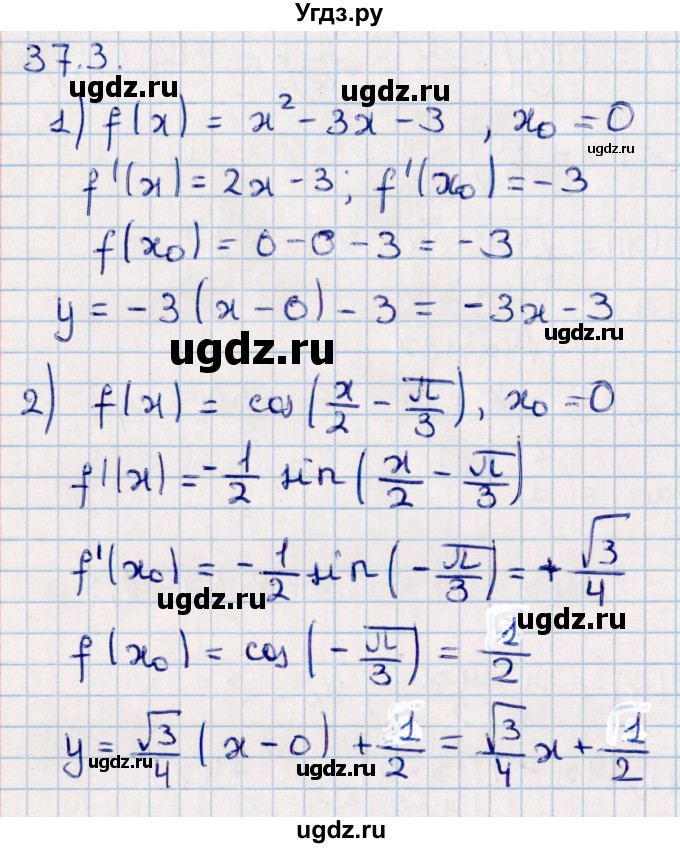 Угдз.ру
37.3.
ugdz.ru
1) f(x) = x² - 3x - 3 , x₀ = 0
ugdz.ru
f'(x) = 2x - 3; f'(x₀) = -3
f(x₀) = 0 - 0 - 3 = -3
y = -3(x - 0) - 3 = -3x - 3
ugdz.ru
2) f(x) = cos(x/2 - π/3), x₀ = 0
f'(x) = -1/2 sin(x/2 - π/3)
f'(x₀) = -1/2 sin(-π/3) = +√3/4
ugdz.ru
ugdz.ru
f(x₀) = cos(-π/3) = 1/2
y = √3/4 (x - 0) + 1/2 = √3/4 x + 1/2
ugdz.ru
ugdz.ru
ugdz.ru